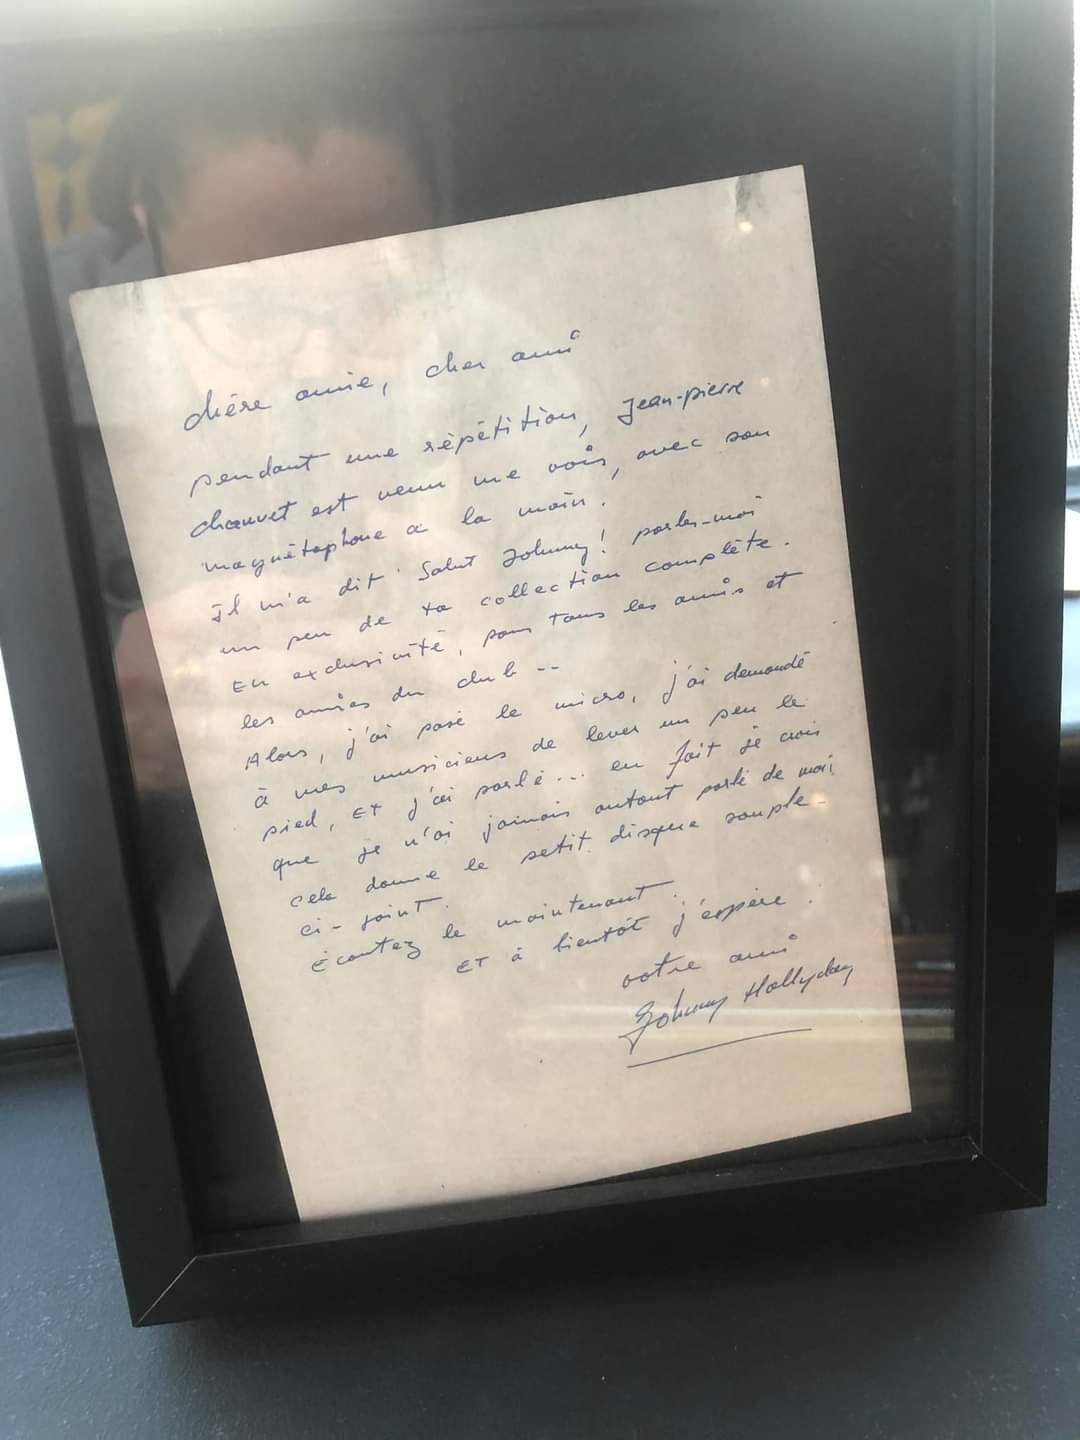 chère amie, cher ami
pendant une répétition, Jean-pierre
chauvet est venu me voir, avec son
magnétophone à la main.
Il m'a dit Salut Johnny! parles-moi
un peu de ta collection complète.
En exclusivité, pour tous les amis et
les amies du club --
Alors, j'ai posé le micro, j'ai demandé
à mes musiciens de lever un peu le
pied, ET j'ai parlé... en fait je crois
que je n'ai jamais autant parlé de moi.
Cela donne le petit disque souple
ci-joint.
écoutez le maintenant.
ET à bientôt j'espère.
votre ami
Johnny Hallyday